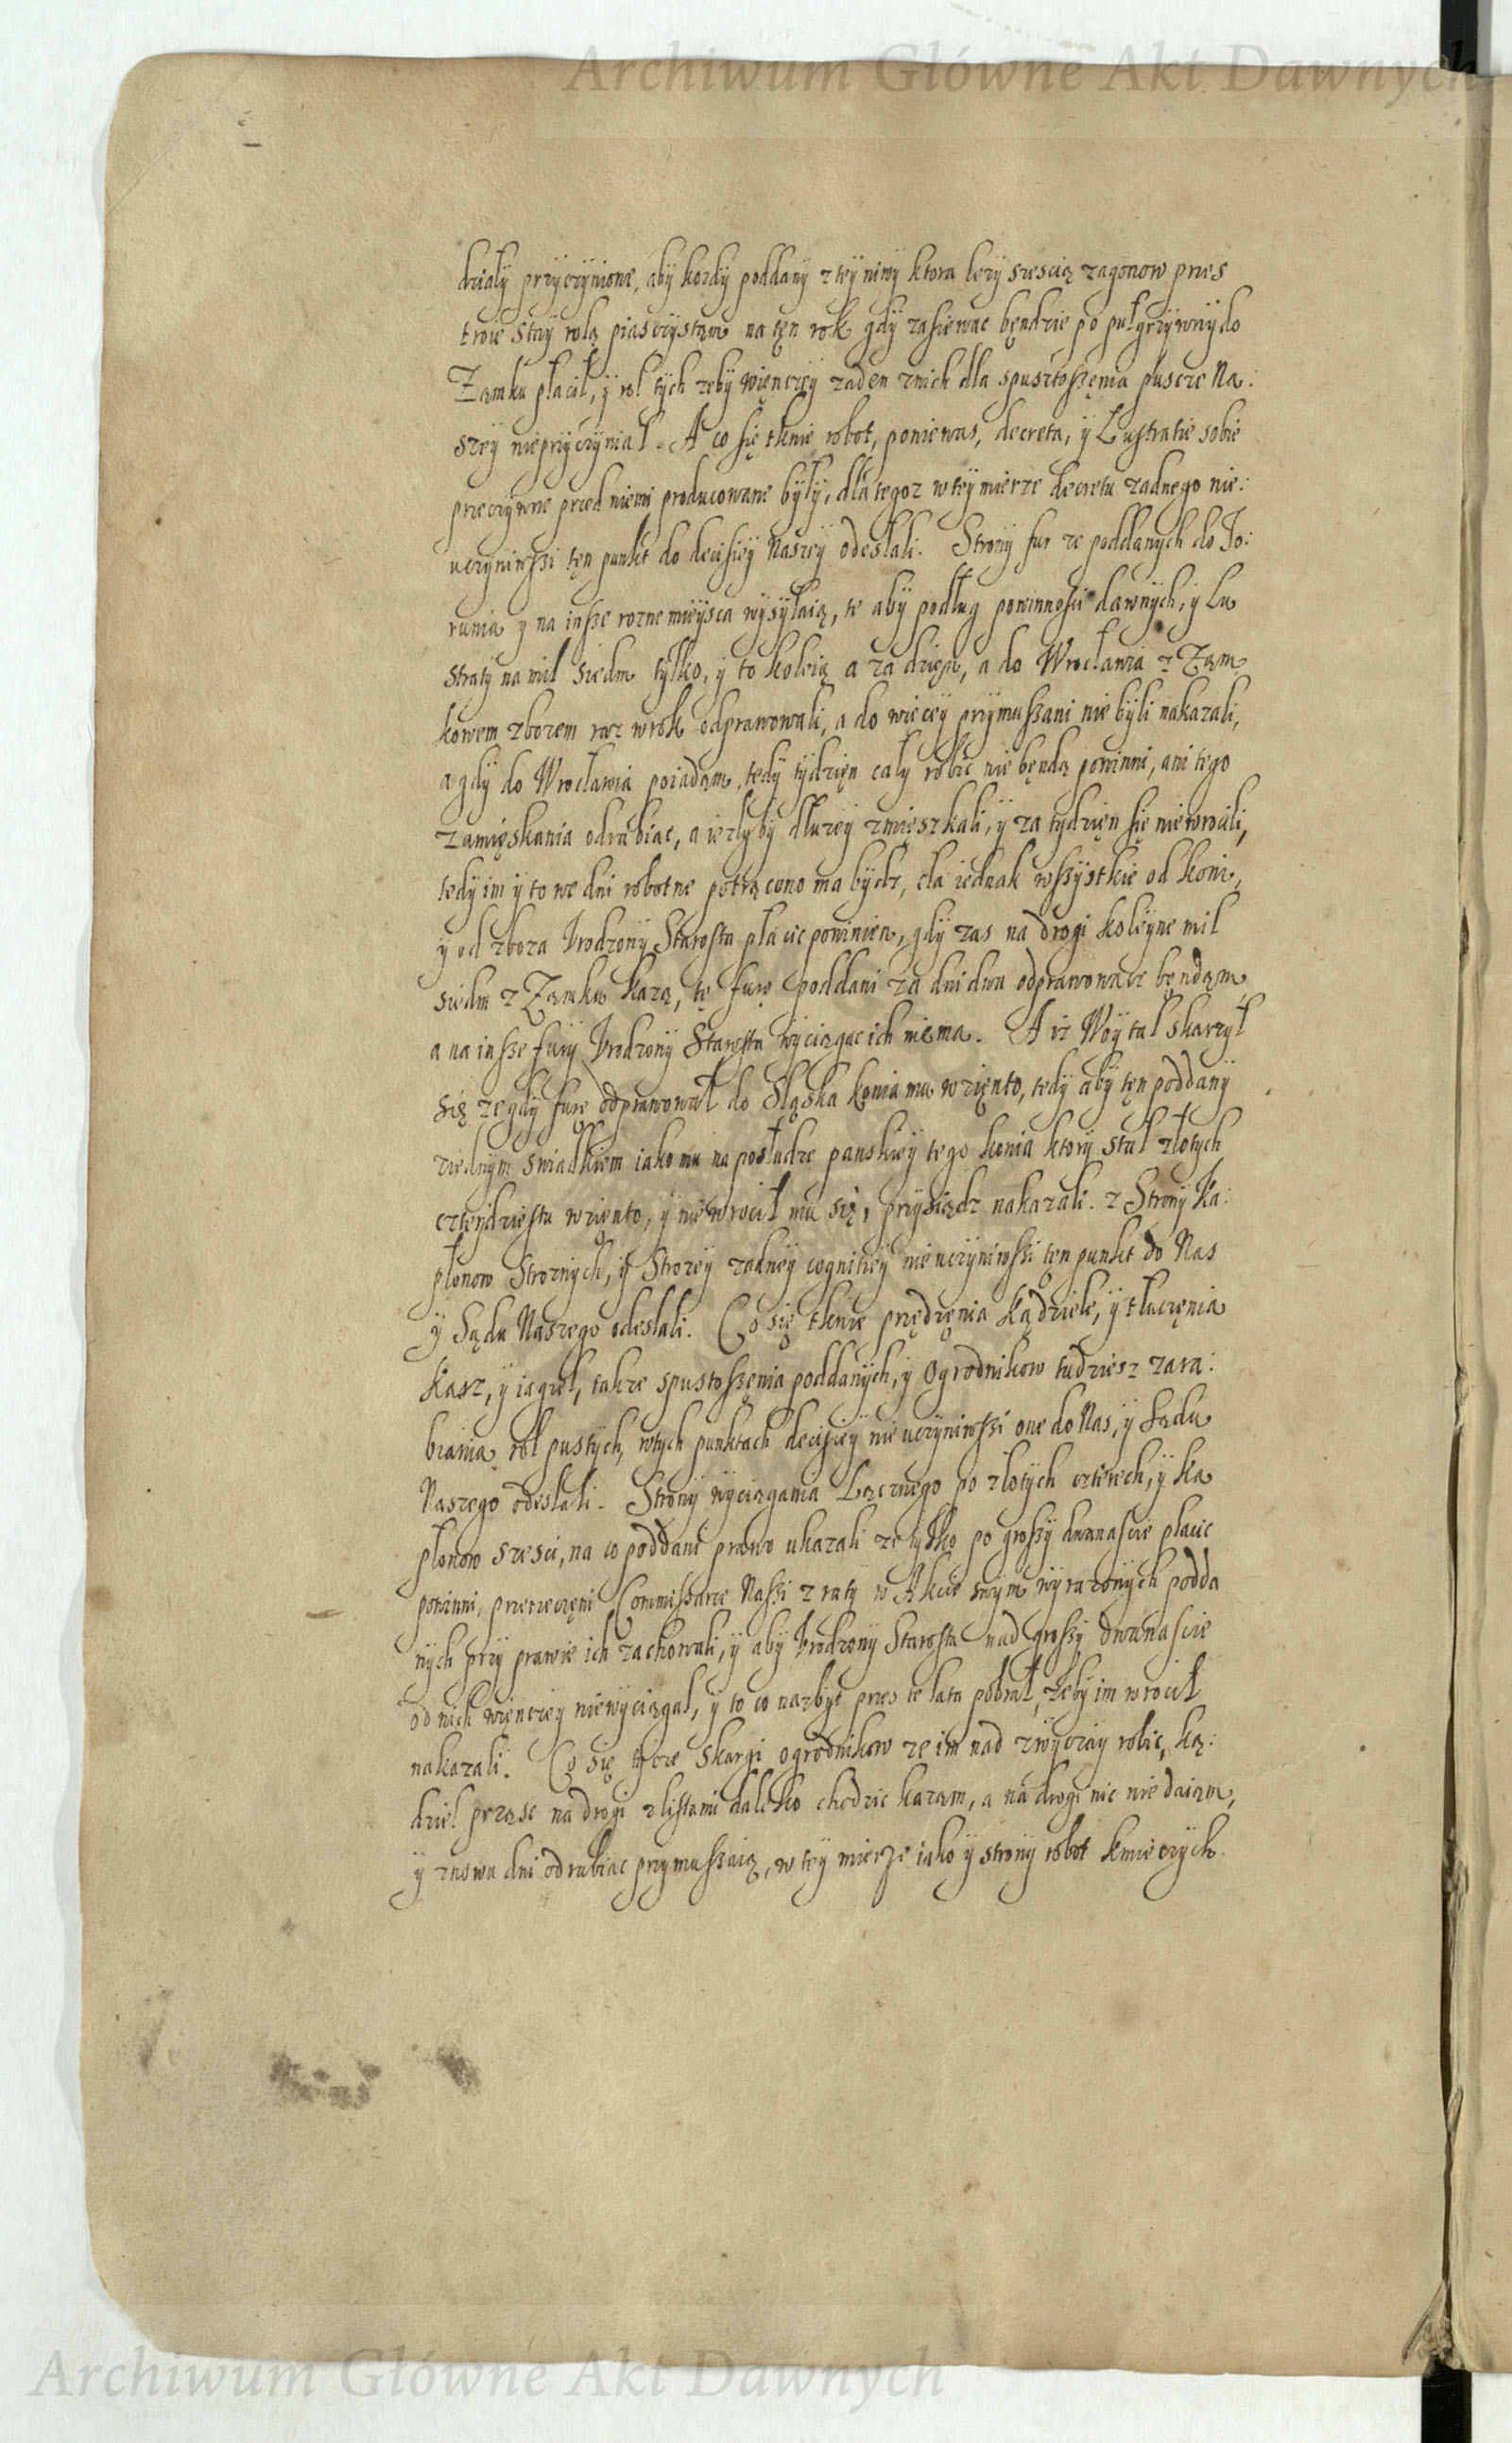 Archiwum Główne Akt Dawnych
działy przyczynione, aby kozdy poddany z tey niwy ktora lezy szescią zagonow przes
troie staj rolą piasczystąm na tęn rok gdy zasiewac będzie po puł grzywny do
Zamku płacił, y rol tych zeby więnczey zaden znich dla spusztoszęnia puszcze Na:
szey nieprzyczyniał. A co się tknie robot, poniewas, decreta, y Lustratie sobie
przeczywne przed niemi producowane były, dla tegoz w tey mierze decretu zadnego nie:
uczyniwszi tęn punkt do decisiey Naszey odesłali. Strony fur ze poddanych do To:
runia y na insze rozne mieysca wysyłaią, te aby podług powinnosci dawnych, y Lu
straty na mil siedm tylko, y to koleią a za dzięn, a do Wrocławia z Zam
kowem zbozem raz wrok odprawowali, a do wiecey przymuszani nie byli nakazali,
a gdy do Wrocławia poiadąm, tedy tydzięn cały robic nie będą powinni, ani tego
zamięskania odrabiac, a iezlyby dłuzey zmięszkali, y za tydzięn się niewrocili,
tedy im y to we dni robotne potrącono ma bydz, cła iednak wszystkie od koni,
y od zboza Urodzony Starosta płacic powinien, gdy zas na drogi koleyne mil
siedm z Zamku kazą, te fury poddani za dni dwa odprawowac będąm
a na insze fury Urodzony Starosta wyciągac ich niema. A iz Woytal skarzył
się ze gdy furę odprawował do Sląska konia mu wzięnto, tedy aby tęn poddany
ziednym swiadkiem iako mu na posłudze panskiey tego konia ktory stał złotych
czterdziestu wzięnto, y niewrocił mu się, przysiądz nakazali. z Strony Ka:
płonow Stroznych, y Strozey zadney cognitiey nieuczyniwszi tęn punkt do Nas
y Sądu Naszego odesłali. Co się tknie przędzęnia kądziele, y tłuczęnia
kasz, y iagieł, takze spustoszęnia poddanych, y Ogrodnikow tudziesz zara:
biania rol pustych, wtych punktach decisiey nie uczyniwszi one do Nas, y Sądu
Naszego odesłali. Strony wyciągania Łącznego po złotych czterech, y ka
płonow szesci, na co poddani prawo ukazali ze tylko po groszy dwanascie płacic
powinni, przerzeczęni Commissarze Naszi z raty w Akcie swym wyrazonych podda
nych przy prawie ich zachowali, y aby Urodzony Starosta nad groszy dwanascie
od nich więnczey niewyciągał, y to co nazbyt przes te lata pobrał, zeby im wrocił
nakazali. Co się tycze skargi ogrodnikow ze im nad zwyczay robic, ką:
dziel prząsc na drogi z listami daleko chodzic kazam, a na drogi nic nie daiąm,
y znowu dni odrabiac przymuszaią, w tey mierze iako y strony robot kmieczych
Archiwum Główne Akt Dawnych